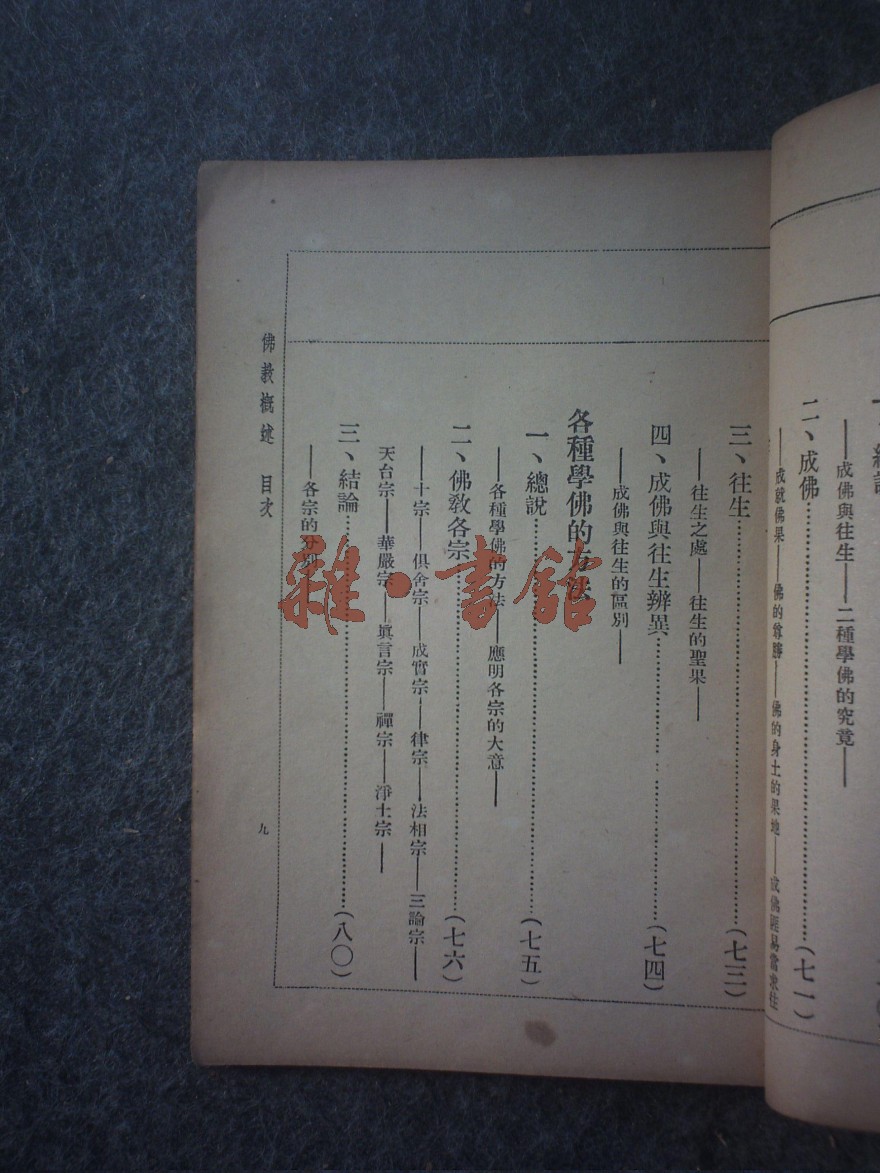 ——成佛與往生——二種學佛的究竟——
二、成佛……(七一)
——成就佛果——佛的尊勝——佛的身土的果地——成佛
三、往生……(七三)
——往生之處——往生的聖果——
四、成佛與往生辨異……(七四)
——成佛與往生的區別——
各種學佛的方法
一、總說……(七五)
——各種學佛的方法——應明各宗的大意——
二、佛教各宗……(七六)
——十宗——俱舍宗——成實宗——律宗——法相宗——三論宗——
天台宗——華嚴宗——眞言宗——禪宗——淨土宗——
三、結論……(八〇)
——各宗的分別——
佛教概述 目次
九
雜·書館